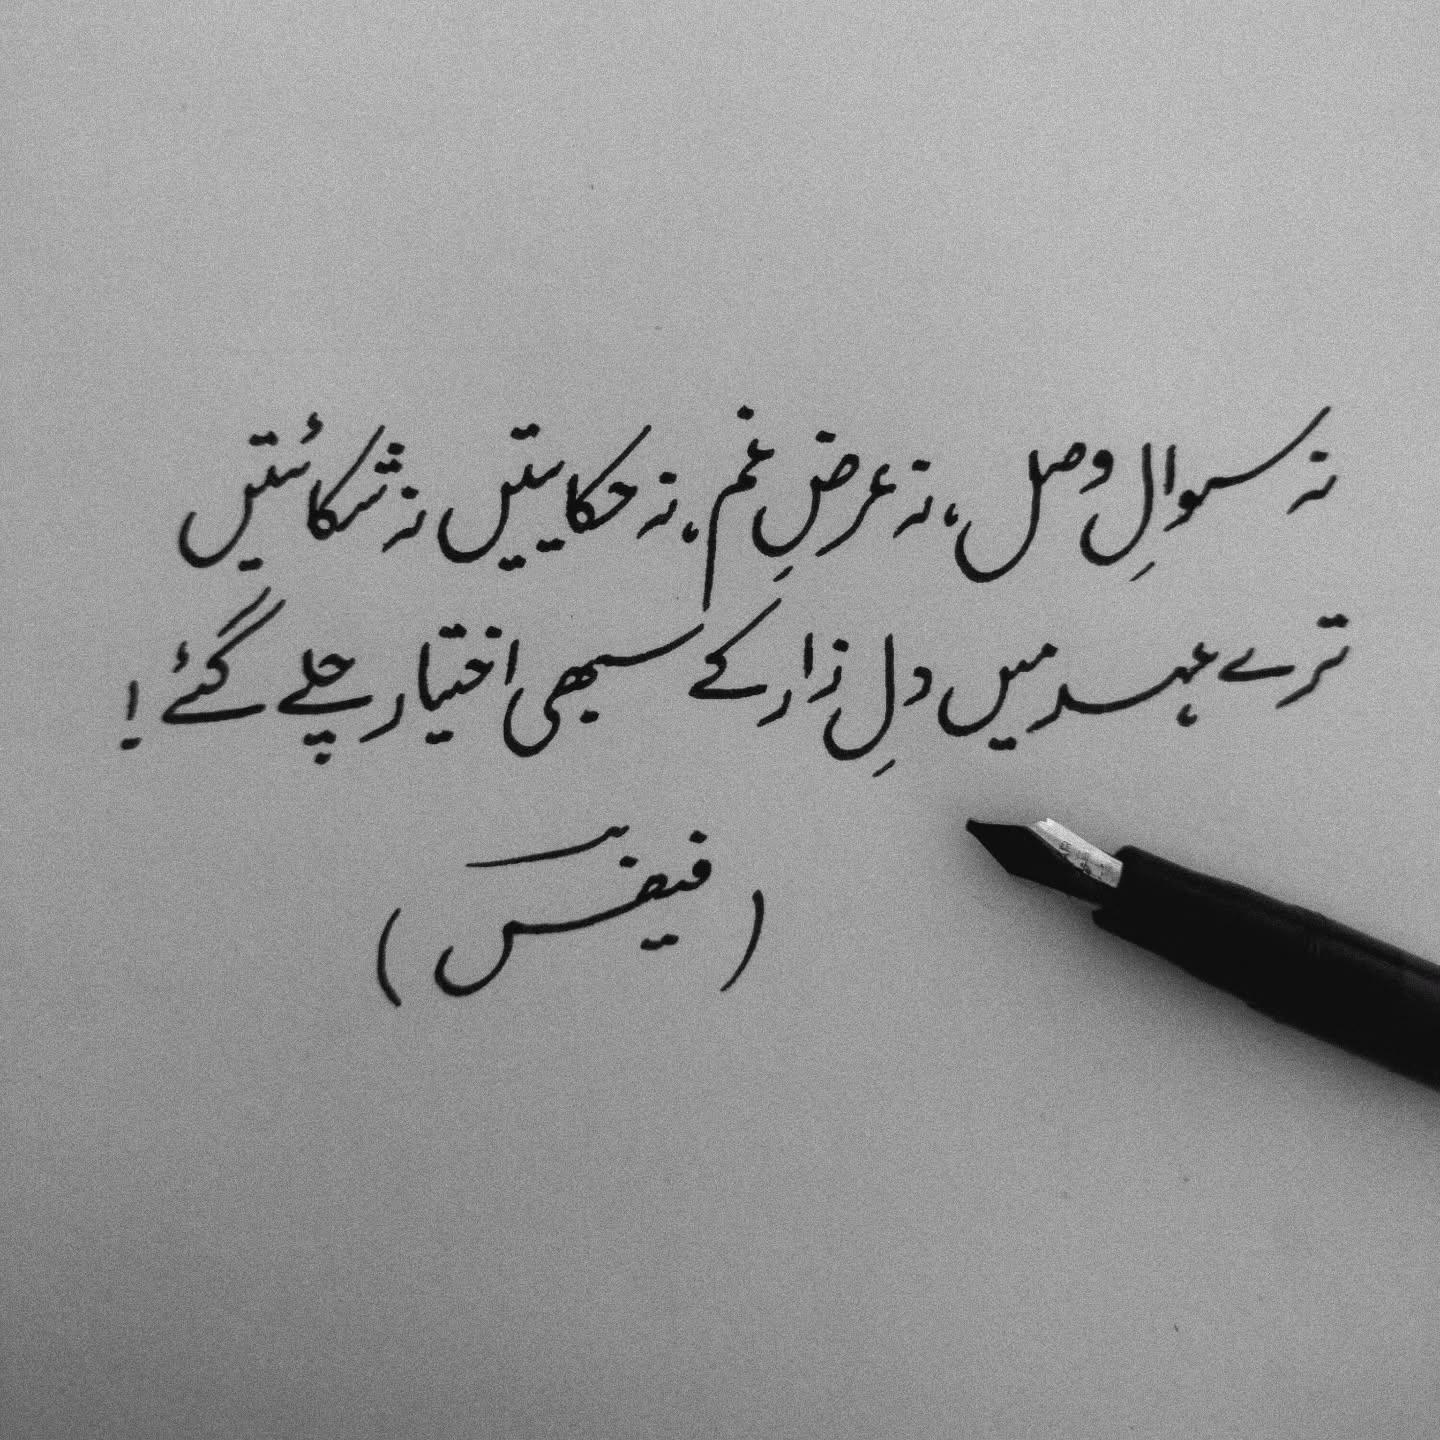 نہ سوالِ وصل، نہ عرضِ غم، نہ حکایتیں نہ شکائتیں
ترے عہد میں دلِ زار کے سبھی اختیار چلے گئے!
(فیض)